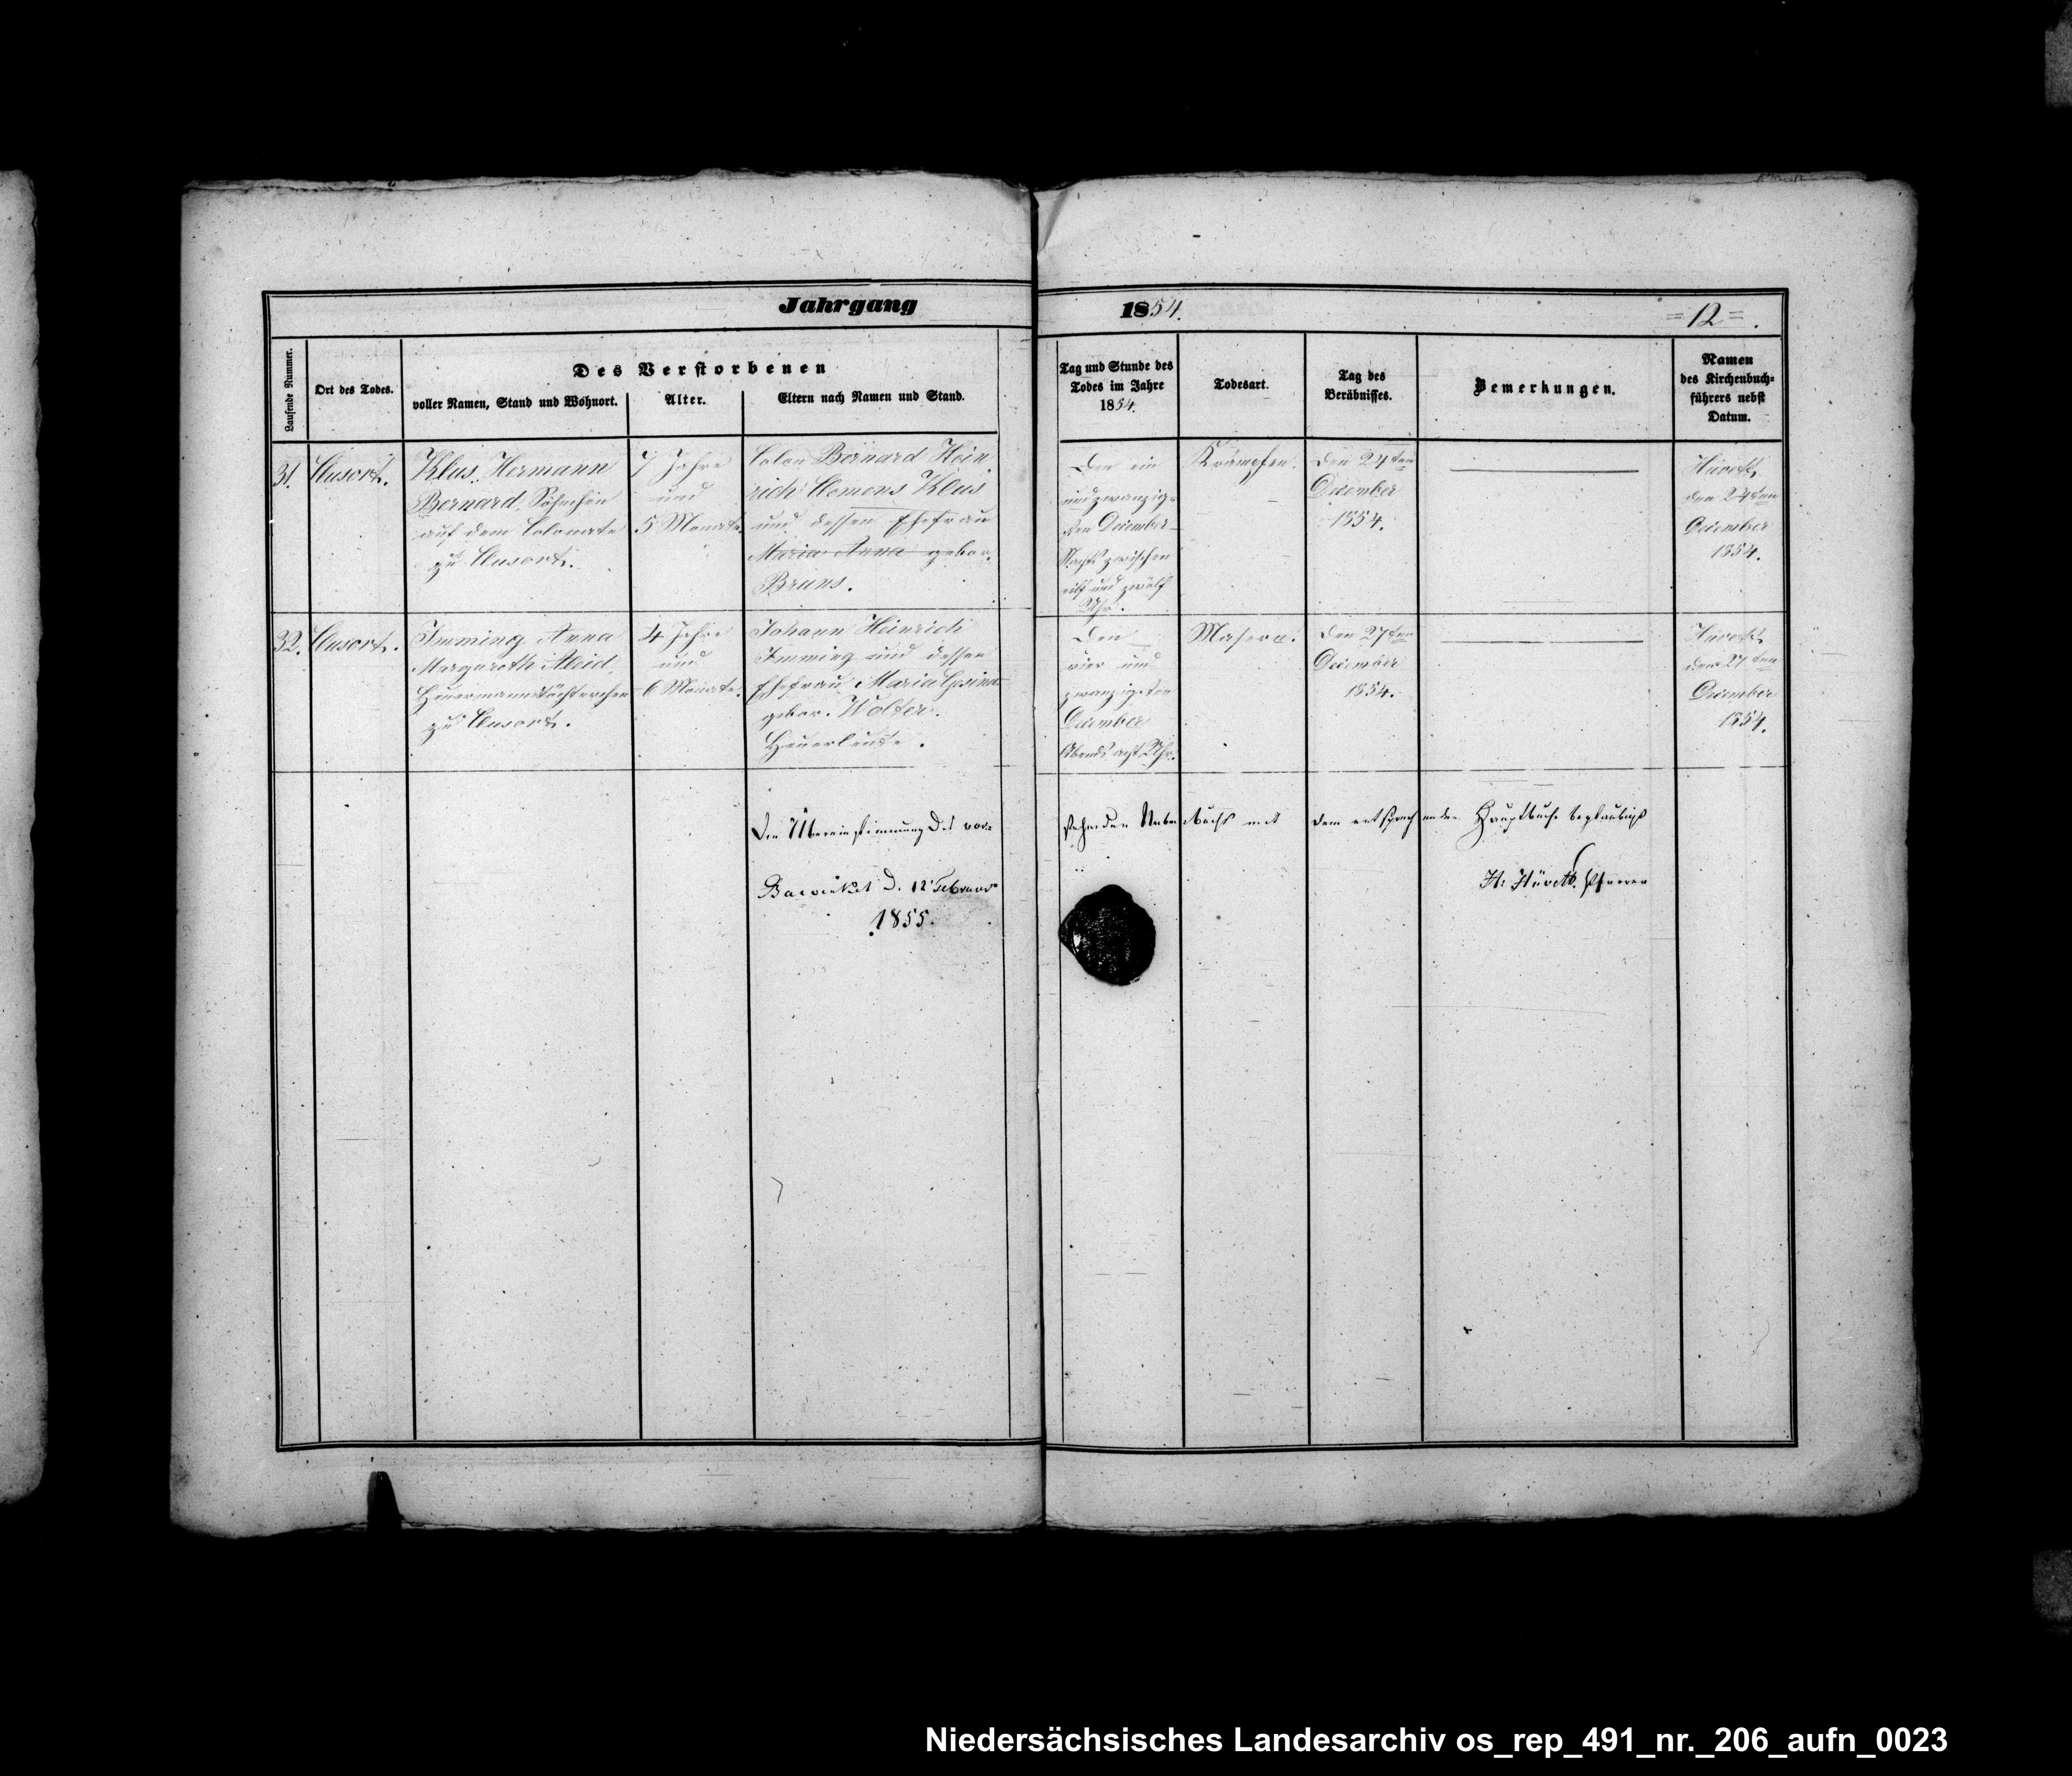 Jahrgang 1854.
=12=.
Laufende Nummer.
Ort des Todes.
Des Verstorbenen
voller Namen, Stand und Wohnort.
Alter.
Eltern nach Namen und Stand.
Tag und Stunde des
Todes im Jahre
1854.
Todesart.
Tag des
Beräbnisses.
Bemerkungen.
Namen
des Kirchenbuch=
führers nebst
Datum.
31.
Clusort.
Klus, Hermann
Bernard, Söhnchen
auf dem Colonate
zu Clusort.
7 Jahre
und
5 Monate.
Colon Bernard Hein
rich Clemens Klus
und dessen Ehefrau
Maria Anna gebor.
Bruns.
Den ein
und zwanzig=
sten December
Nachts zwischen
elf und zwölf
Uhr.
Krämpfen.
Den 24ten
December
1854.
Hüvett,
den 24ten
December
1854.
32.
Clusort.
Imming Anna
Margareth Aleid,
Heuermannstöchterchen
zu Clusort.
4 Jahre
und
6 Monate.
Johann Heinrich
Imming und dessen
Ehefrau Maria Gesina
gebor. Wolter.
Heuerleute.
Den
vier und
zwanzigsten
December
Abends acht Uhr.
Masern.
Den 27ten
December
1854.
Hüvett,
den 27ten
December
1854.
Die Übereinstimmung des vor=
stehenden Nebenbuchs mit dem entsprechenden Hauptbuche beglaubigt
Bawinkel d. 12 Februar
1855.
H. Hüvett. Pfarrer
Niedersächsisches Landesarchiv os_rep_491_nr._206_aufn_0023